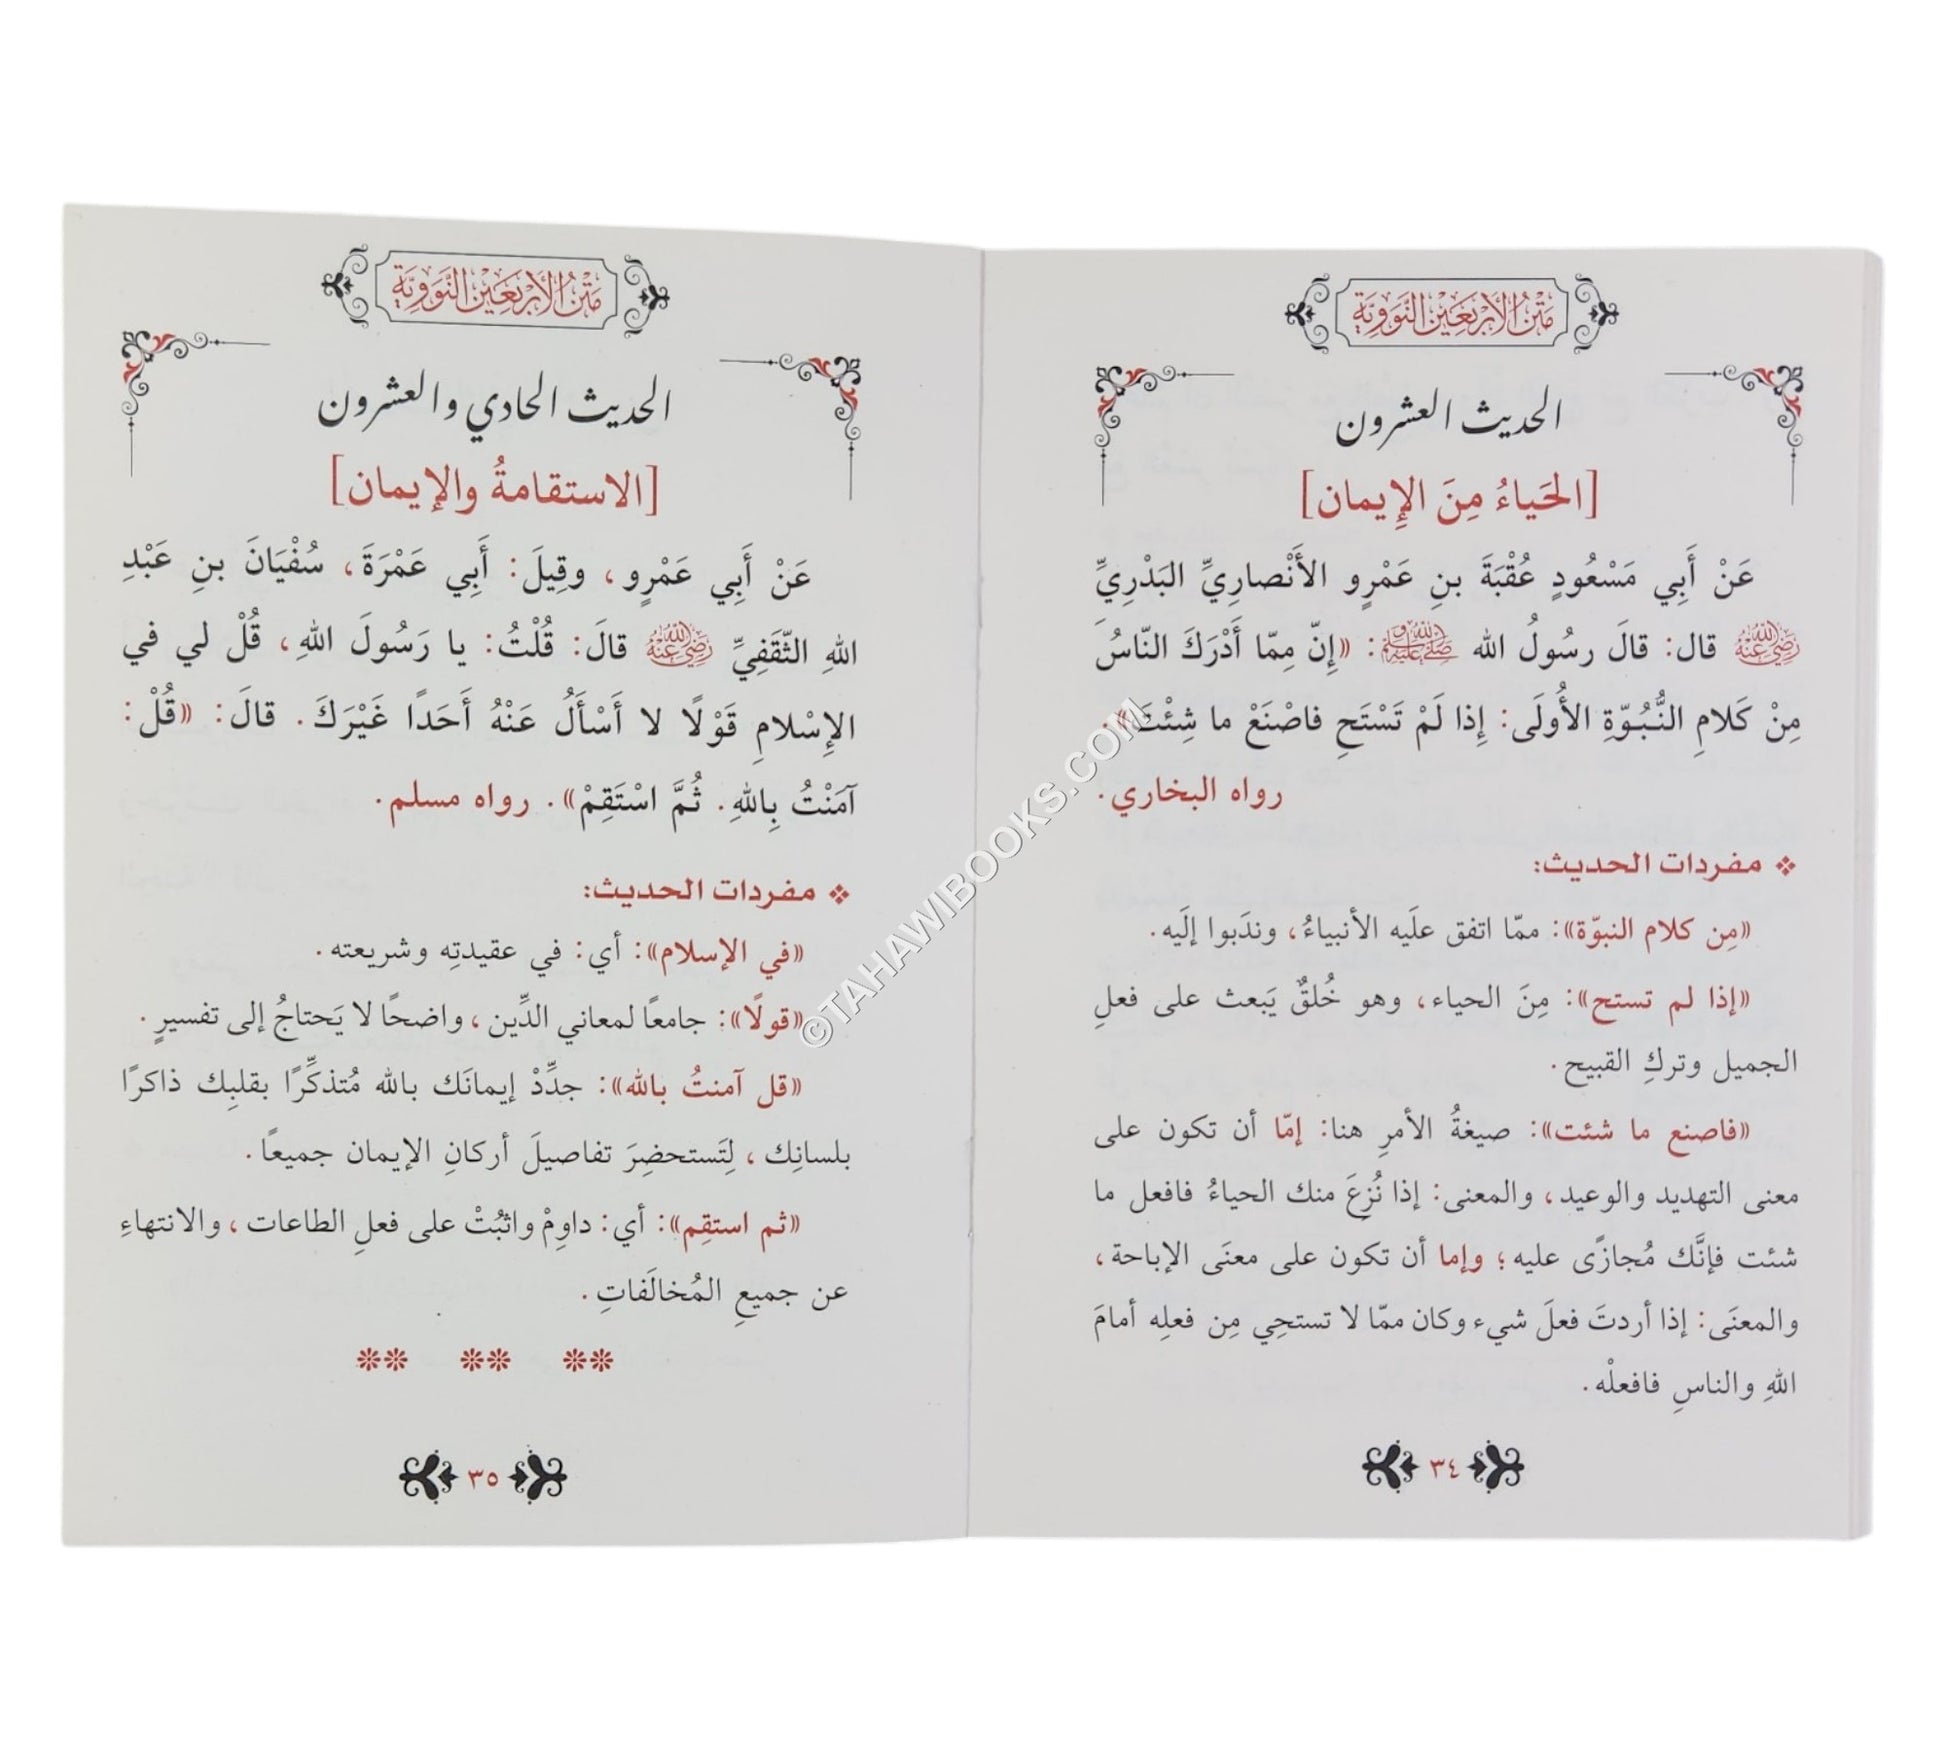 مَتْنُ الأَرْبَعِيْنَ النَّوَوِيَّةِ
الحديث العشرون
[الحَياءُ مِنَ الإِيمان]
عَنْ أَبِي مَسْعُودٍ عُقْبَةَ بنِ عَمْرٍو الأَنْصارِيِّ البَدْرِيِّ
رضي الله عنه قال: قالَ رسُولُ الله صلى الله عليه وسلم: «إِنّ مِمّا أَدْرَكَ النّاسُ
مِنْ كَلامِ النُّبُوّةِ الأُولَى: إِذا لَمْ تَسْتَحِ فاصْنَعْ ما شِئْتَ».
رواه البخاري.
❖ مفردات الحديث:
«مِن كلام النبوّة»: ممّا اتفق علَيه الأنبياءُ، وندَبوا إلَيه.
«إذا لم تستح»: مِنَ الحياء، وهو خُلقٌ يَبعث على فعلِ
الجميل وتركِ القبيح.
«فاصنع ما شئت»: صيغةُ الأمرِ هنا: إمّا أن تكون على
معنى التهديد والوعيد، والمعنى: إذا نُزِعَ منك الحياءُ فافعل ما
شئت فإنَّك مُجازًى عليه؛ وإما أن تكون على معنَى الإباحة،
والمعنَى: إذا أردتَ فعلَ شيء وكان ممّا لا تستحِي مِن فعلِه أمامَ
اللهِ والناسِ فافعلْه.
٣٤
مَتْنُ الأَرْبَعِيْنَ النَّوَوِيَّةِ
الحديث الحادي والعشرون
[الاستقامةُ والإيمان]
عَنْ أَبِي عَمْرٍو، وقِيلَ: أَبِي عَمْرَةَ، سُفْيَانَ بنِ عَبْدِ
اللهِ الثّقَفِيِّ رضي الله عنه قالَ: قُلْتُ: يا رَسُولَ اللهِ، قُلْ لي في
الإسْلامِ قَوْلًا لا أَسْأَلُ عَنْهُ أَحَدًا غَيْرَكَ. قالَ: «قُلْ:
آمَنْتُ بِاللهِ. ثُمَّ اسْتَقِمْ». رواه مسلم.
❖ مفردات الحديث:
«في الإسلام»: أي: في عقيدتِه وشريعته.
«قولًا»: جامعًا لمعاني الدِّين، واضحًا لا يَحتاجُ إلى تفسيرٍ.
«قل آمنتُ بالله»: جدِّدْ إيمانَك بالله مُتذكِّرًا بقلبِك ذاكرًا
بلسانِك، لِتَستحضِرَ تفاصيلَ أركانِ الإيمان جميعًا.
«ثم استقِم»: أي: داوِمْ واثبُتْ على فعلِ الطاعات، والانتهاءِ
عن جميعِ المُخالَفاتِ.
٣٥
©TAHAWIBOOKS.COM